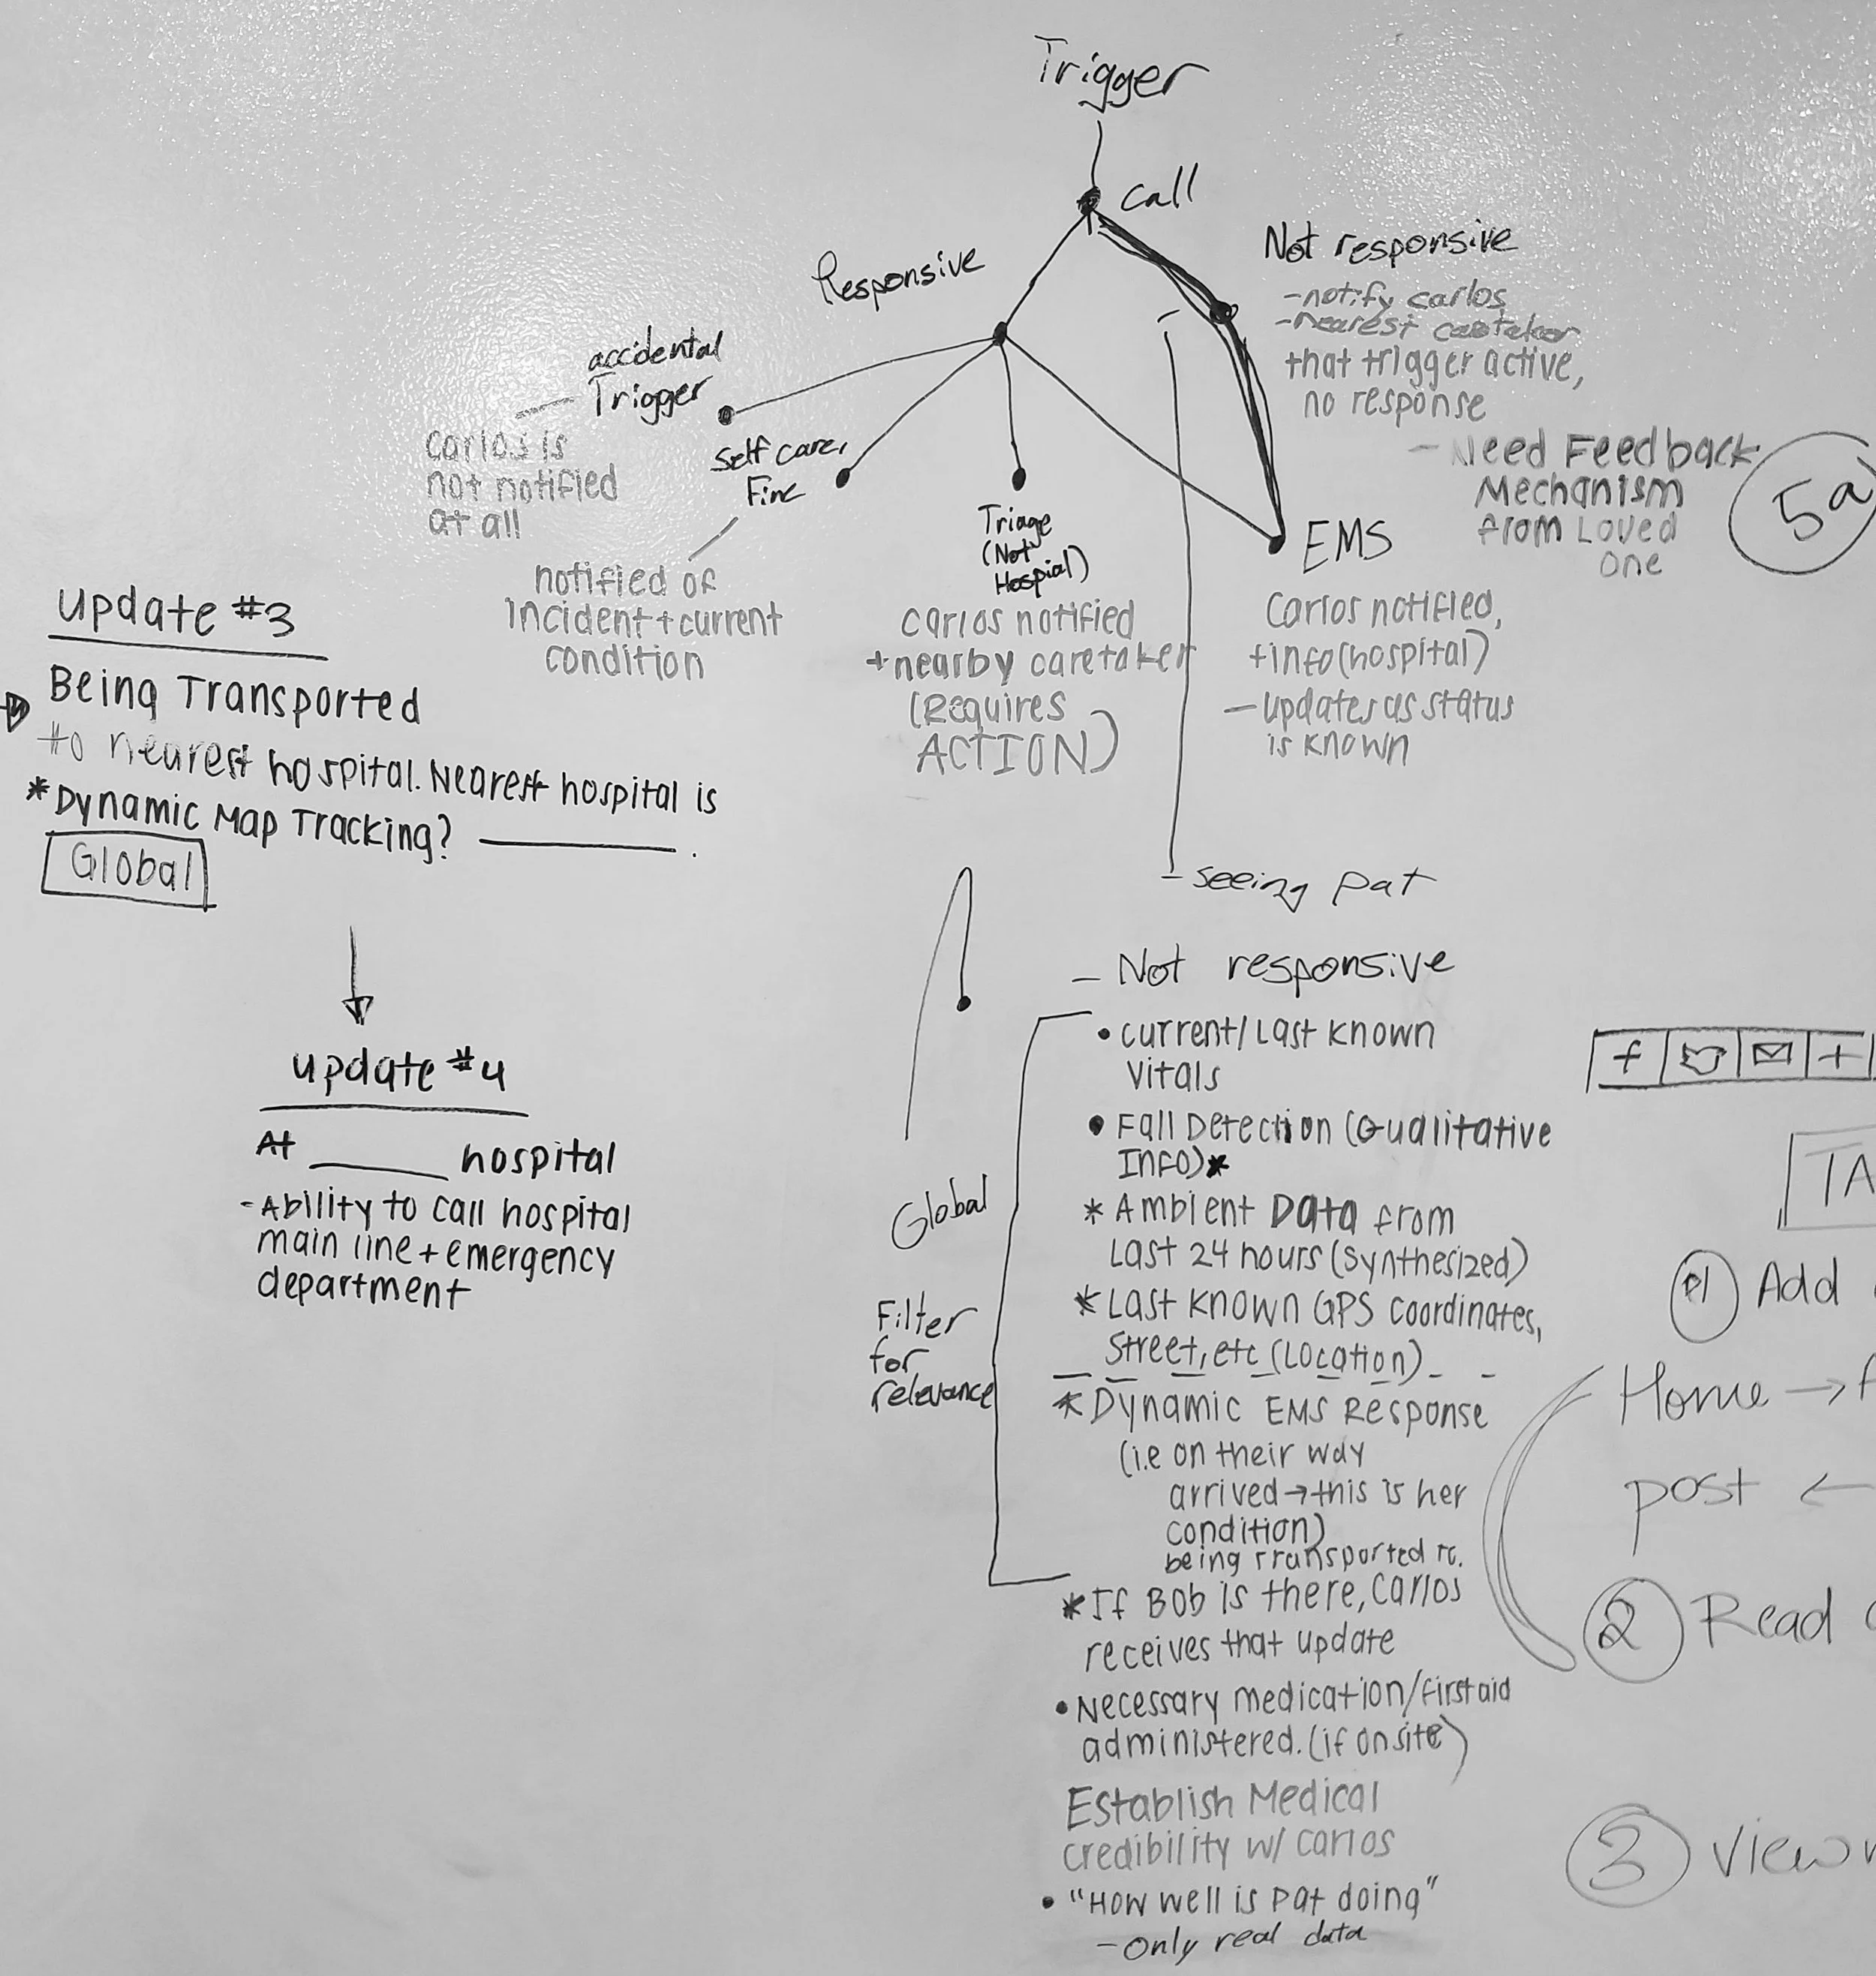 Trigger
Call
Responsive
Not responsive
-notify carlos
-nearest caretaker
that trigger active,
no response
- Need Feedback
Mechanism
from Loved
One
5a
accidental
Trigger
Carlos is
not notified
at all
Self care,
Fine
notified of
incident + current
condition
Triage
(Not
Hospial)
Carlos notified
+ nearby caretaker
(Requires
ACTION)
EMS
Carlos notified,
+info (hospital)
- updates as status
is known
update #3
Being Transported
to nearest hospital. Nearest hospital is
*Dynamic Map Tracking? ________.
Global
update #4
At ______ hospital
- Ability to call hospital
main line + emergency
department
- seeing pat
- Not responsive
• current/Last known
vitals
• Fall Detection (Qualitative
Info)*
* Ambient Data from
Last 24 hours (synthesized)
* Last known GPS coordinates,
street, etc (Location)
* Dynamic EMS Response
(i.e on their way
arrived → this is her
condition)
being transported to.
* If Bob is there, Carlos
receives that update
• Necessary medication/first aid
administered. (if onsite)
Establish Medical
credibility w/ carlos
• "How well is pat doing"
- Only real data
Global
Filter
for
relevance
f
+
TA
Add
Home →
post ←
2 Read
3 View